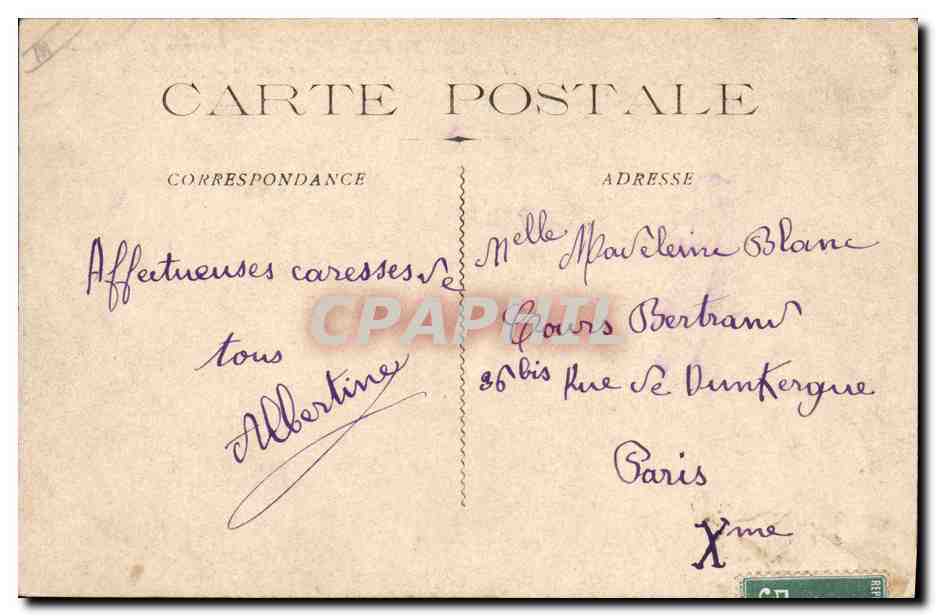 CARTE POSTALE
CORRESPONDANCE
ADRESSE
Affectueuses caresses de
tous
Albertine
Melle Madeleine Blanc
Cours Bertrand
36bis Rue de Dunkergue
Paris
Xme
CPAPHIL
5
REP